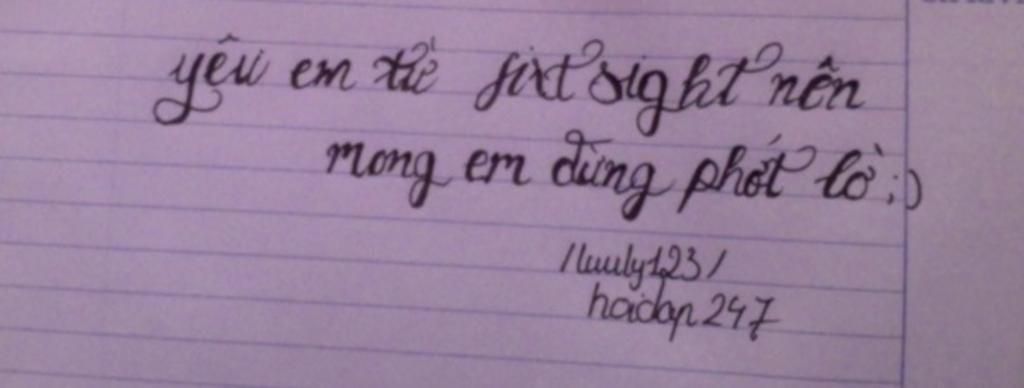 yêu em từ fixt sight nên
mong em đừng phớt lờ :)
/luuly123/
hoidap247